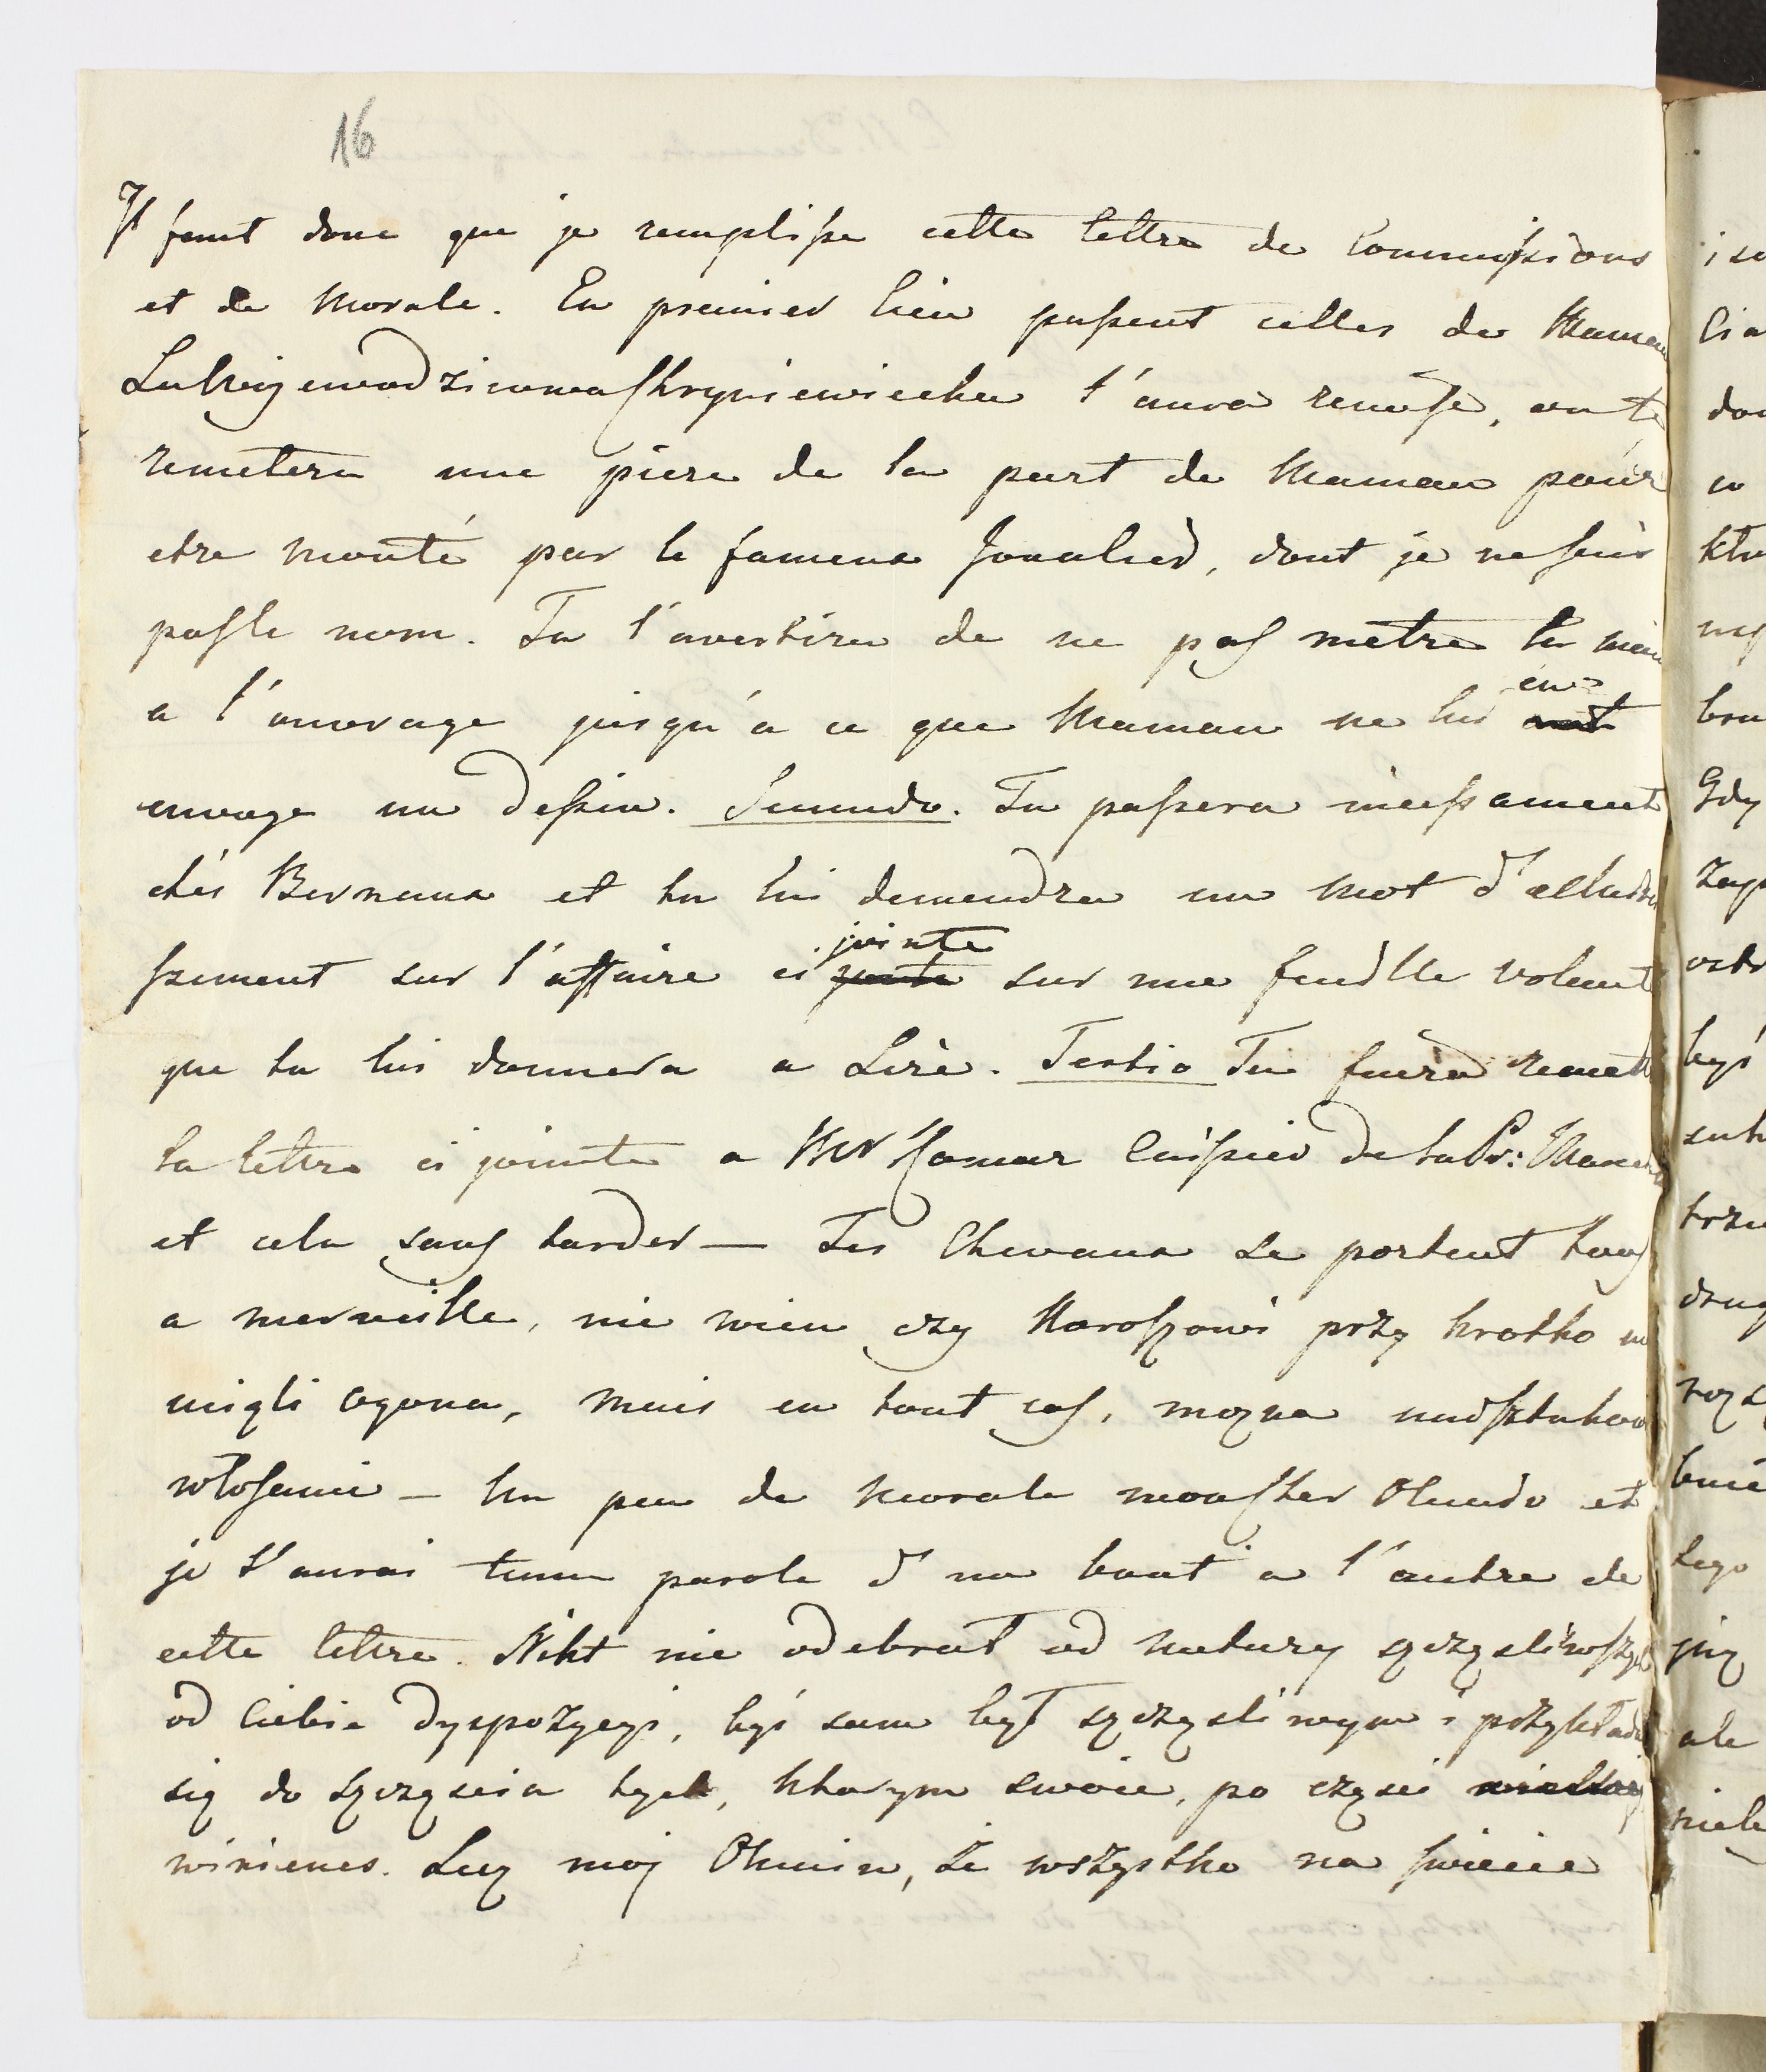 16
Il faut donc que je remplisse cette lettre de Commissions
et de Morale. En premier lieu passent celles de Maman
t'aura remise, on te
remetera une piere de la part de Maman pour
etre monté par le fameux Joualier, dont je ne sais
pas le nom. Tu l'avertira de ne pas metre la main
a l'ouvrage jusqu'a ce que Maman ne lui en=
envoye un dessin. Secundo. Tu passera incessament
chés Bernaux et tu lui demendra un mot d'
ssement sur l'affaire ci jointe sur une feuille volent
que tu lui donnera a Lire. Tertio Tu fera remett
la lettre ci jointe a Mr Caissier de la Pr:
et cela sans tarder — Tes Chevaux se portent tous
a merveille, nie wiem czy Karoszowi przy krotko
uciąli ogona, mais en tout cas, mozna nadsztukow
włosami — Un peu de Morale mon cher Olendo et
je t'aurai tenu parole d'un bout a l'autre de
cette lettre. Nikt nie odebrał od natury sczęsliwszych
od Ciebie dyspozycyi, byś sam był sczęsliwym i przykład
się do sczęscia tych, ktorym swoie, po częsci
winienes. Lecz moj Olesiu, że wszystko na swiecie
i so
lia
don
w
ktu
bra
Gdy
być
trzu
drug
tego
już
ale